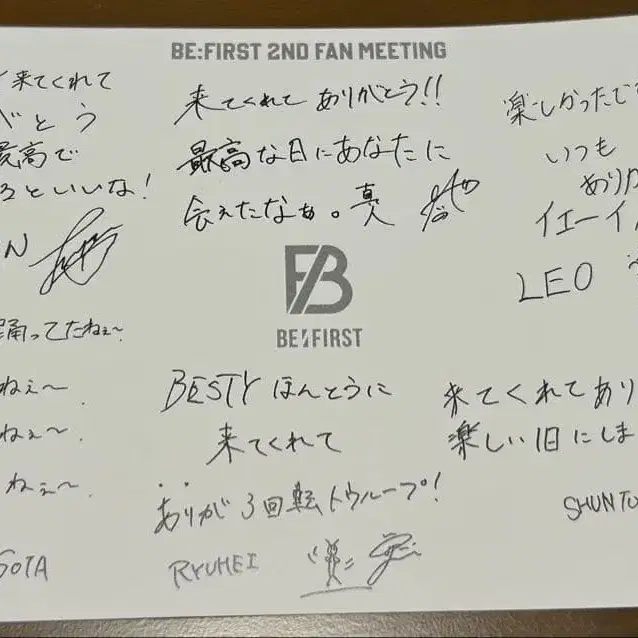 BE:FIRST 2ND FAN MEETING
来てくれて
がとう
最高で
るといいな!
N
来てくれて ありがとう!!
最高な日にあなたに
会えたなぁ。真
楽しかったです
いつも
ありが
イエーイ
LEO
BE:FIRST
踊ってたねぇ〜
ねぇ〜
ねぇ〜
ねぇ〜
SOTA
BESTY ほんとうに
来てくれて
ありが3回転トウループ!
RYUHEI
来てくれてあり
楽しい1日にしま
SHUNTO